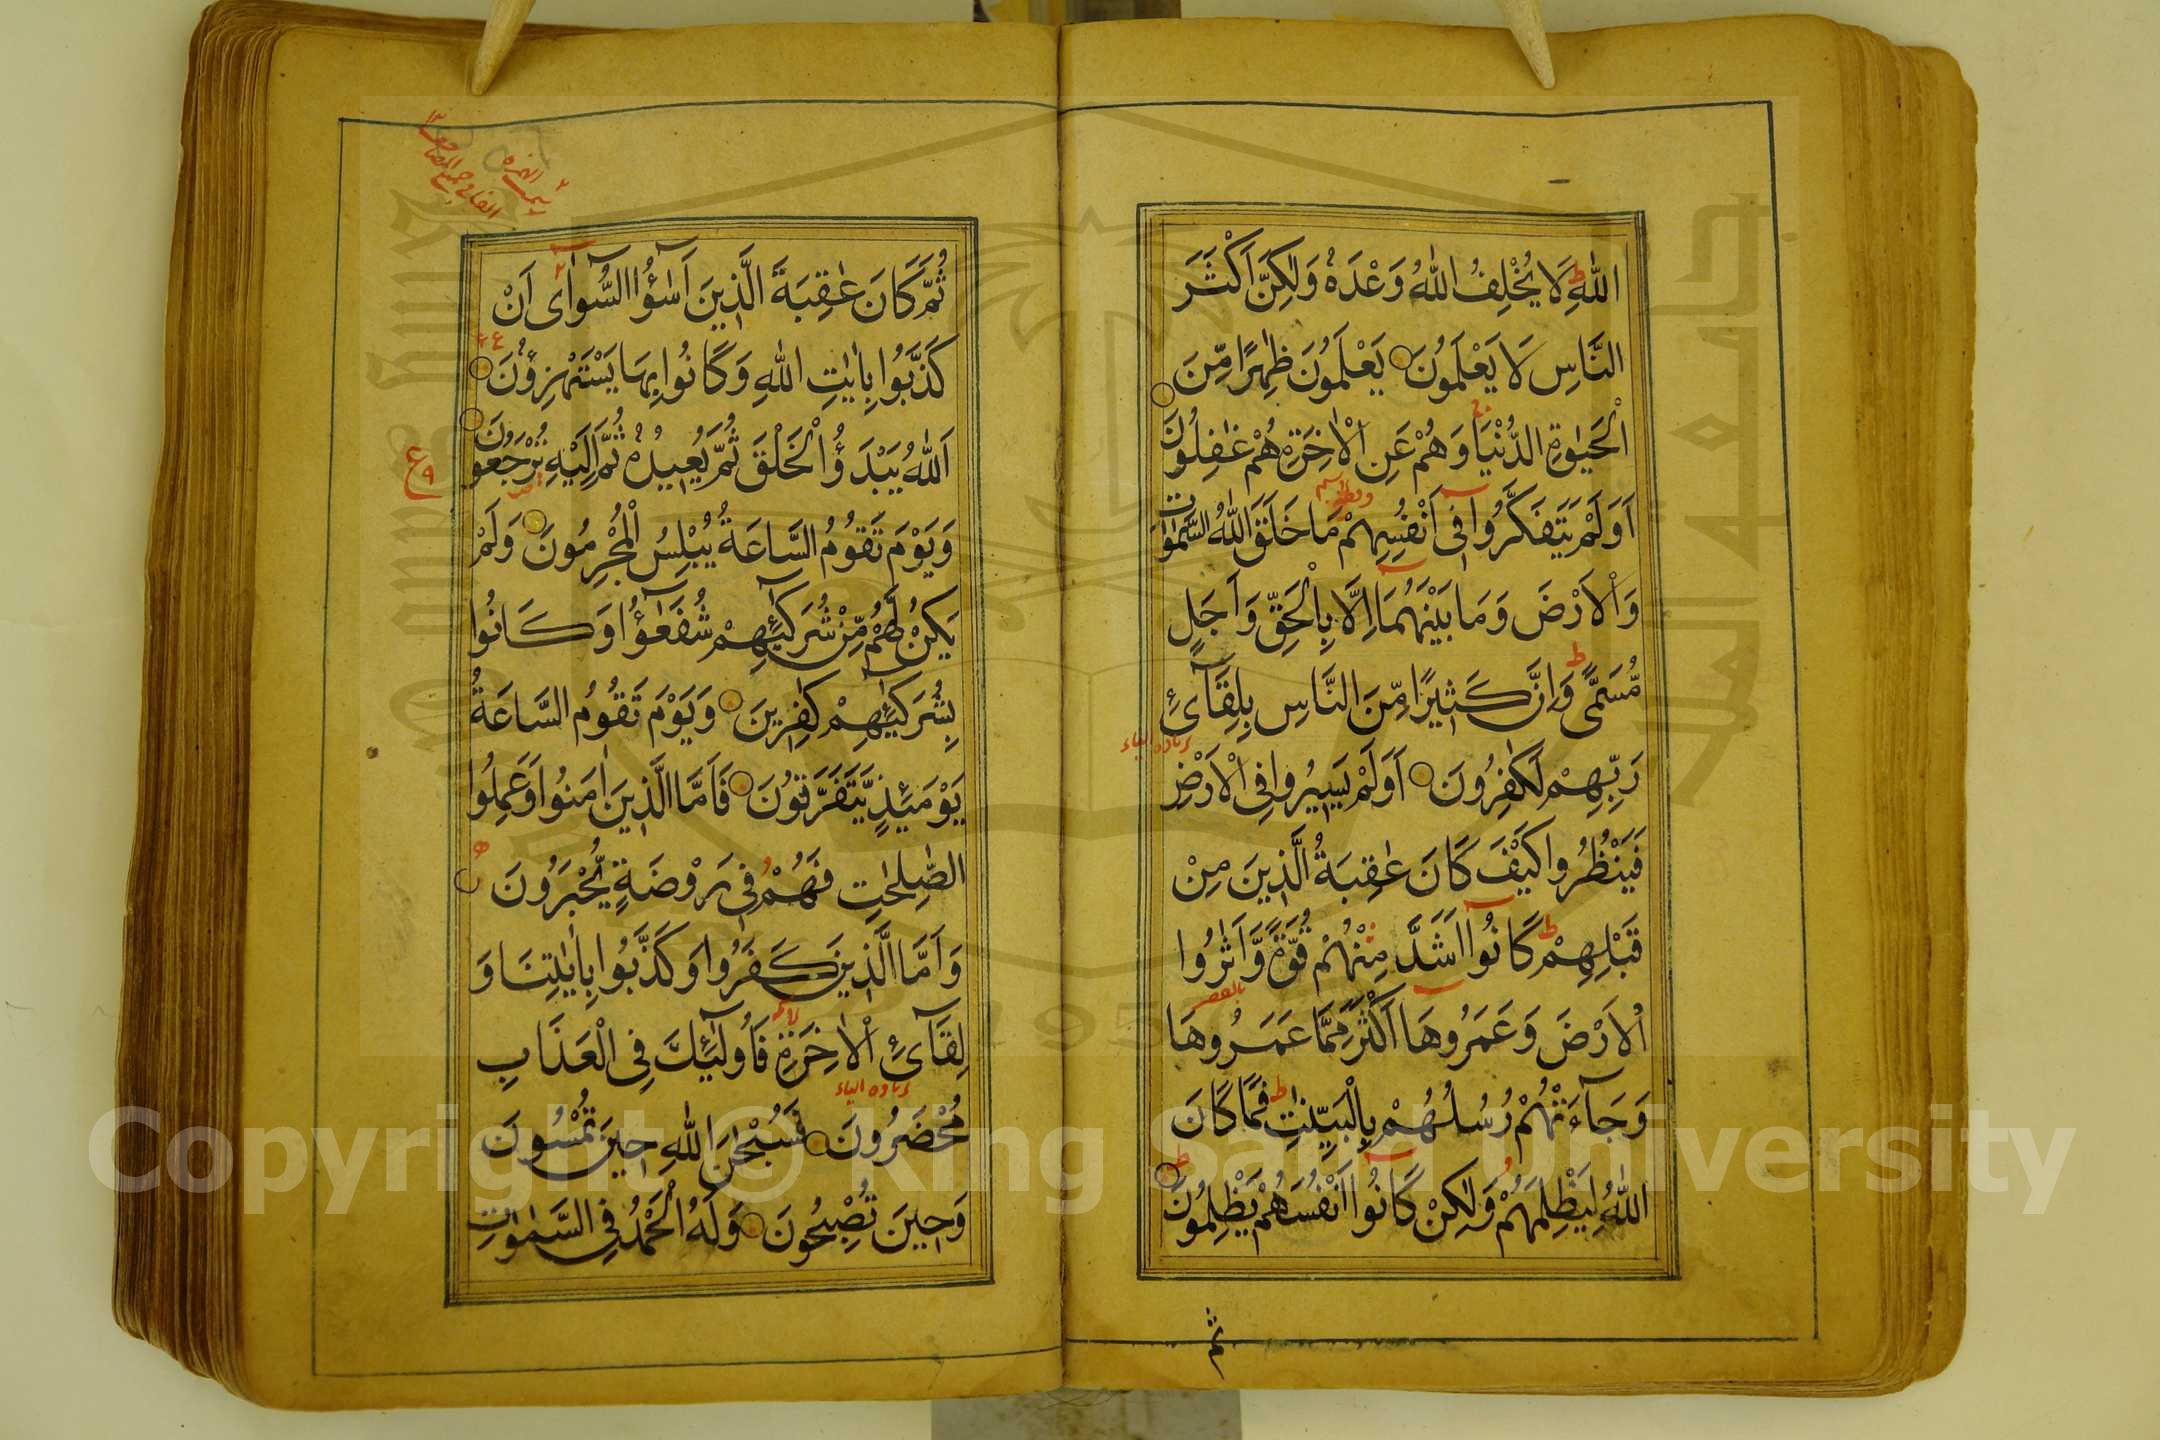 اللّٰهِ لَا يُخْلِفُ اللّٰهُ وَعْدَهٗ وَلٰكِنَّ اَكْثَرَ
النَّاسِ لَا يَعْلَمُونَ يَعْلَمُونَ ظٰهِرًا مِّنَ
الْحَيٰوةِ الدُّنْيَا وَهُمْ عَنِ الْاٰخِرَةِ هُمْ غٰفِلُونَ
اَوَلَمْ يَتَفَكَّرُوا فِى اَنْفُسِهِمْ مَا خَلَقَ اللّٰهُ السَّمٰوٰتِ
وَالْاَرْضَ وَمَا بَيْنَهُمَا اِلَّا بِالْحَقِّ وَاَجَلٍ
مُّسَمًّى وَاِنَّ كَثِيرًا مِّنَ النَّاسِ بِلِقَآئِ
زياده الياء
رَبِّهِمْ لَكٰفِرُونَ اَوَلَمْ يَسِيرُوا فِى الْاَرْضِ
فَيَنْظُرُوا كَيْفَ كَانَ عٰقِبَةُ الَّذِينَ مِنْ
قَبْلِهِمْ كَانُوا اَشَدَّ مِنْهُمْ قُوَّةً وَّاَثٰرُوا
الْاَرْضَ وَعَمَرُوهَا اَكْثَرَ مِمَّا عَمَرُوهَا
وَجَآءَتْهُمْ رُسُلُهُمْ بِالْبَيِّنٰتِ فَمَا كَانَ
اللّٰهُ لِيَظْلِمَهُمْ وَلٰكِنْ كَانُوا اَنْفُسَهُمْ يَظْلِمُونَ
ثم
ثُمَّ كَانَ عٰقِبَةَ الَّذِينَ اَسٰٓؤُا السُّوٓاٰى اَنْ
كَذَّبُوا بِاٰيٰتِ اللّٰهِ وَكَانُوا بِهَا يَسْتَهْزِؤُنَ
اَللّٰهُ يَبْدَؤُا الْخَلْقَ ثُمَّ يُعِيدُهٗ ثُمَّ اِلَيْهِ تُرْجَعُونَ
وَيَوْمَ تَقُومُ السَّاعَةُ يُبْلِسُ الْمُجْرِمُونَ وَلَمْ
يَكُنْ لَّهُمْ مِّنْ شُرَكَآئِهِمْ شُفَعٰٓؤُا وَكَانُوا
بِشُرَكَآئِهِمْ كٰفِرِينَ وَيَوْمَ تَقُومُ السَّاعَةُ
يَوْمَئِذٍ يَّتَفَرَّقُونَ فَاَمَّا الَّذِينَ اٰمَنُوا وَعَمِلُوا
الصّٰلِحٰتِ فَهُمْ فِى رَوْضَةٍ يُّحْبَرُونَ
وَاَمَّا الَّذِينَ كَفَرُوا وَكَذَّبُوا بِاٰيٰتِنَا وَ
لِقَآئِ الْاٰخِرَةِ فَاُولٰٓئِكَ فِى الْعَذَابِ
زياده الياء
مُحْضَرُونَ فَسُبْحٰنَ اللّٰهِ حِينَ تُمْسُونَ
وَحِينَ تُصْبِحُونَ وَلَهُ الْحَمْدُ فِى السَّمٰوٰتِ
Copyright © King Saud University
جامعة الملك سعود
1957